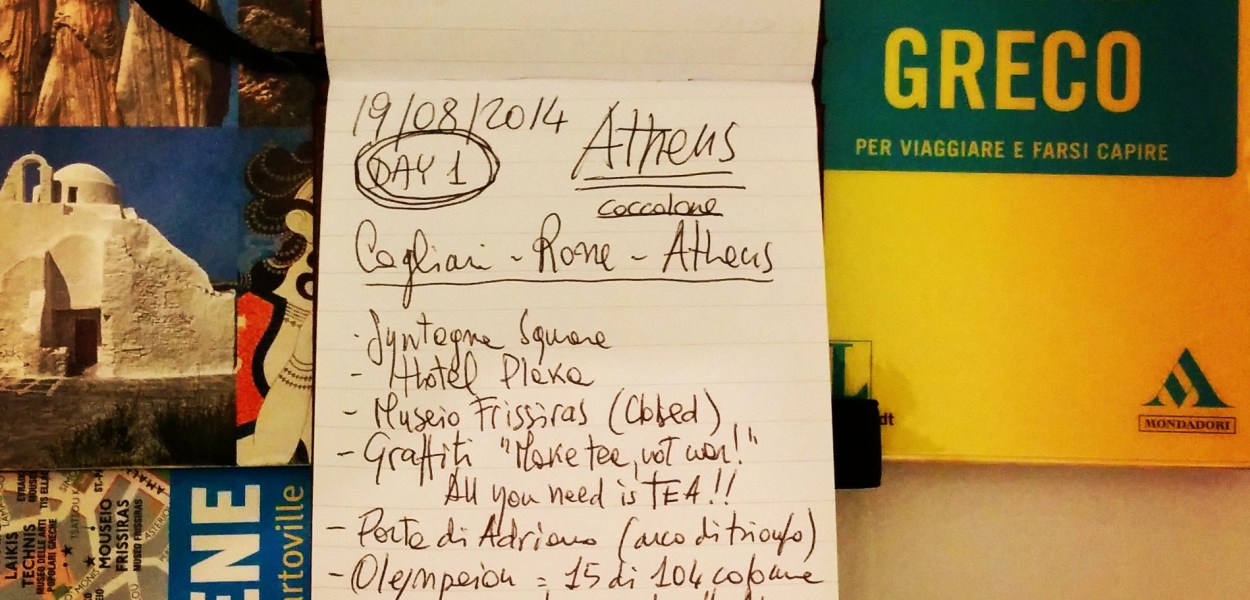 19/08/2014
Athens
DAY 1
coccolone
Cagliari - Rome - Athens
- Syntagma Square
- Hotel Plaka
- Museio Frissiras (Closed)
- Graffiti "Make tea, not war!"
All you need is TEA!!
- Porta di Adriano (arco di trionfo)
- Olejmpeion = 15 di 104 colonne
GRECO
PER VIAGGIARE E FARSI CAPIRE
L
dt
MONDADORI
ENE
artoville
LAIKIS
TECHNIS
MUSEO DELLE ARTI
POPOLARI GRECHE
MOUSEIO
FRISSIRAS
MUSEO FRISSIRAS